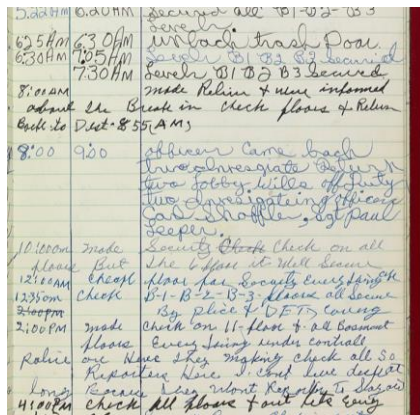 5:20AM 6:20AM Secured all B1-B2-B3
Levels.
625AM 6:30AM unback trash Door
6:30AM 7:05AM Levels B1 B2 B3 Secured
7:30AM Levels B1 B2 B3 Secured
8:00AM made Relive & were informed
about the Break in check floors & Return
Back to Dest 8:55(AM)
8:00 900 officer Came back
two Lobby. Wills off Duty
two Investigateing officer
Carl Shoffler, Sgt Paul
Leeper.
10:00am made Security Check Check on all
floors But the 6 floor it Well Secure
12:00AM cheak floor for Security Everything OK
12:35am check B-1-B-2-B-3-floors all Secure
2:00PM By Plice & DETS
2:00PM made check on 11-floor & all Basment
floors Everything under controll
Police are Here They making check all So
Reporters Here I Cant live desk at
long Because They Wont Reporter To
4:00PM check all floors & out lets Every